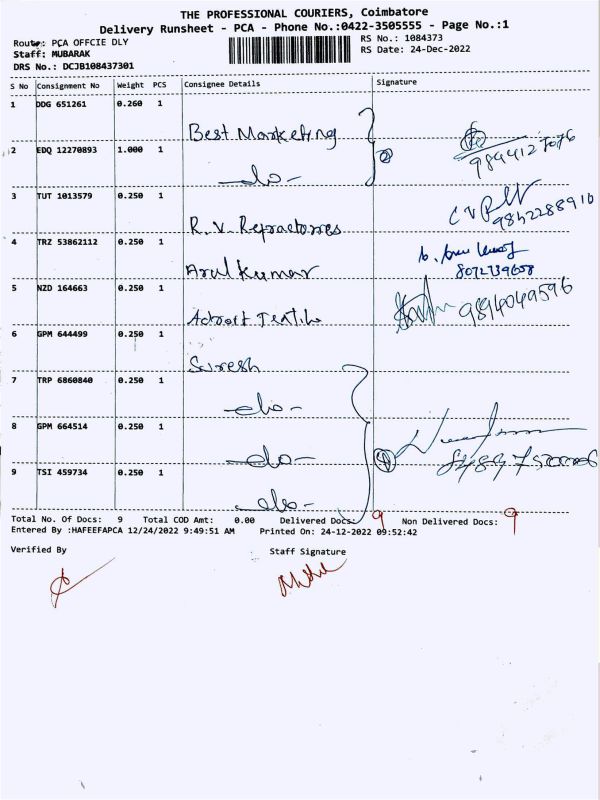 THE PROFESSIONAL COURIERS, Coimbatore
Delivery Runsheet - PCA - Phone No.:0422-3505555 - Page No.:1
Route: PCA OFFCIE DLY
RS No.: 1084373
Staff: MUBARAK
RS Date: 24-Dec-2022
DRS No.: DCJB108437301
S No Consignment No Weight PCS Consignee Details Signature
1 DDG 651261 0.260 1
Best Marketing
2 EDQ 12270893 1.000 1
2
9844127076
-do-
3 TUT 1013579 0.250 1
9842288910
R. V. Refractorres
4 TRZ 53862112 0.250 1
Arul Kumar
8072739658
5 NZD 164663 0.250 1
9894049596
6 GPM 644499 0.250 1
Suresh
7 TRP 6860840 0.250 1
-do-
8 GPM 664514 0.250 1
-do-
4
9 TSI 459734 0.250 1
-do-
Total No. Of Docs: 9 Total COD Amt: 0.00 Delivered Docs: 9 Non Delivered Docs: 9
Entered By :HAFEEFAPCA 12/24/2022 9:49:51 AM Printed On: 24-12-2022 09:52:42
Verified By Staff Signature